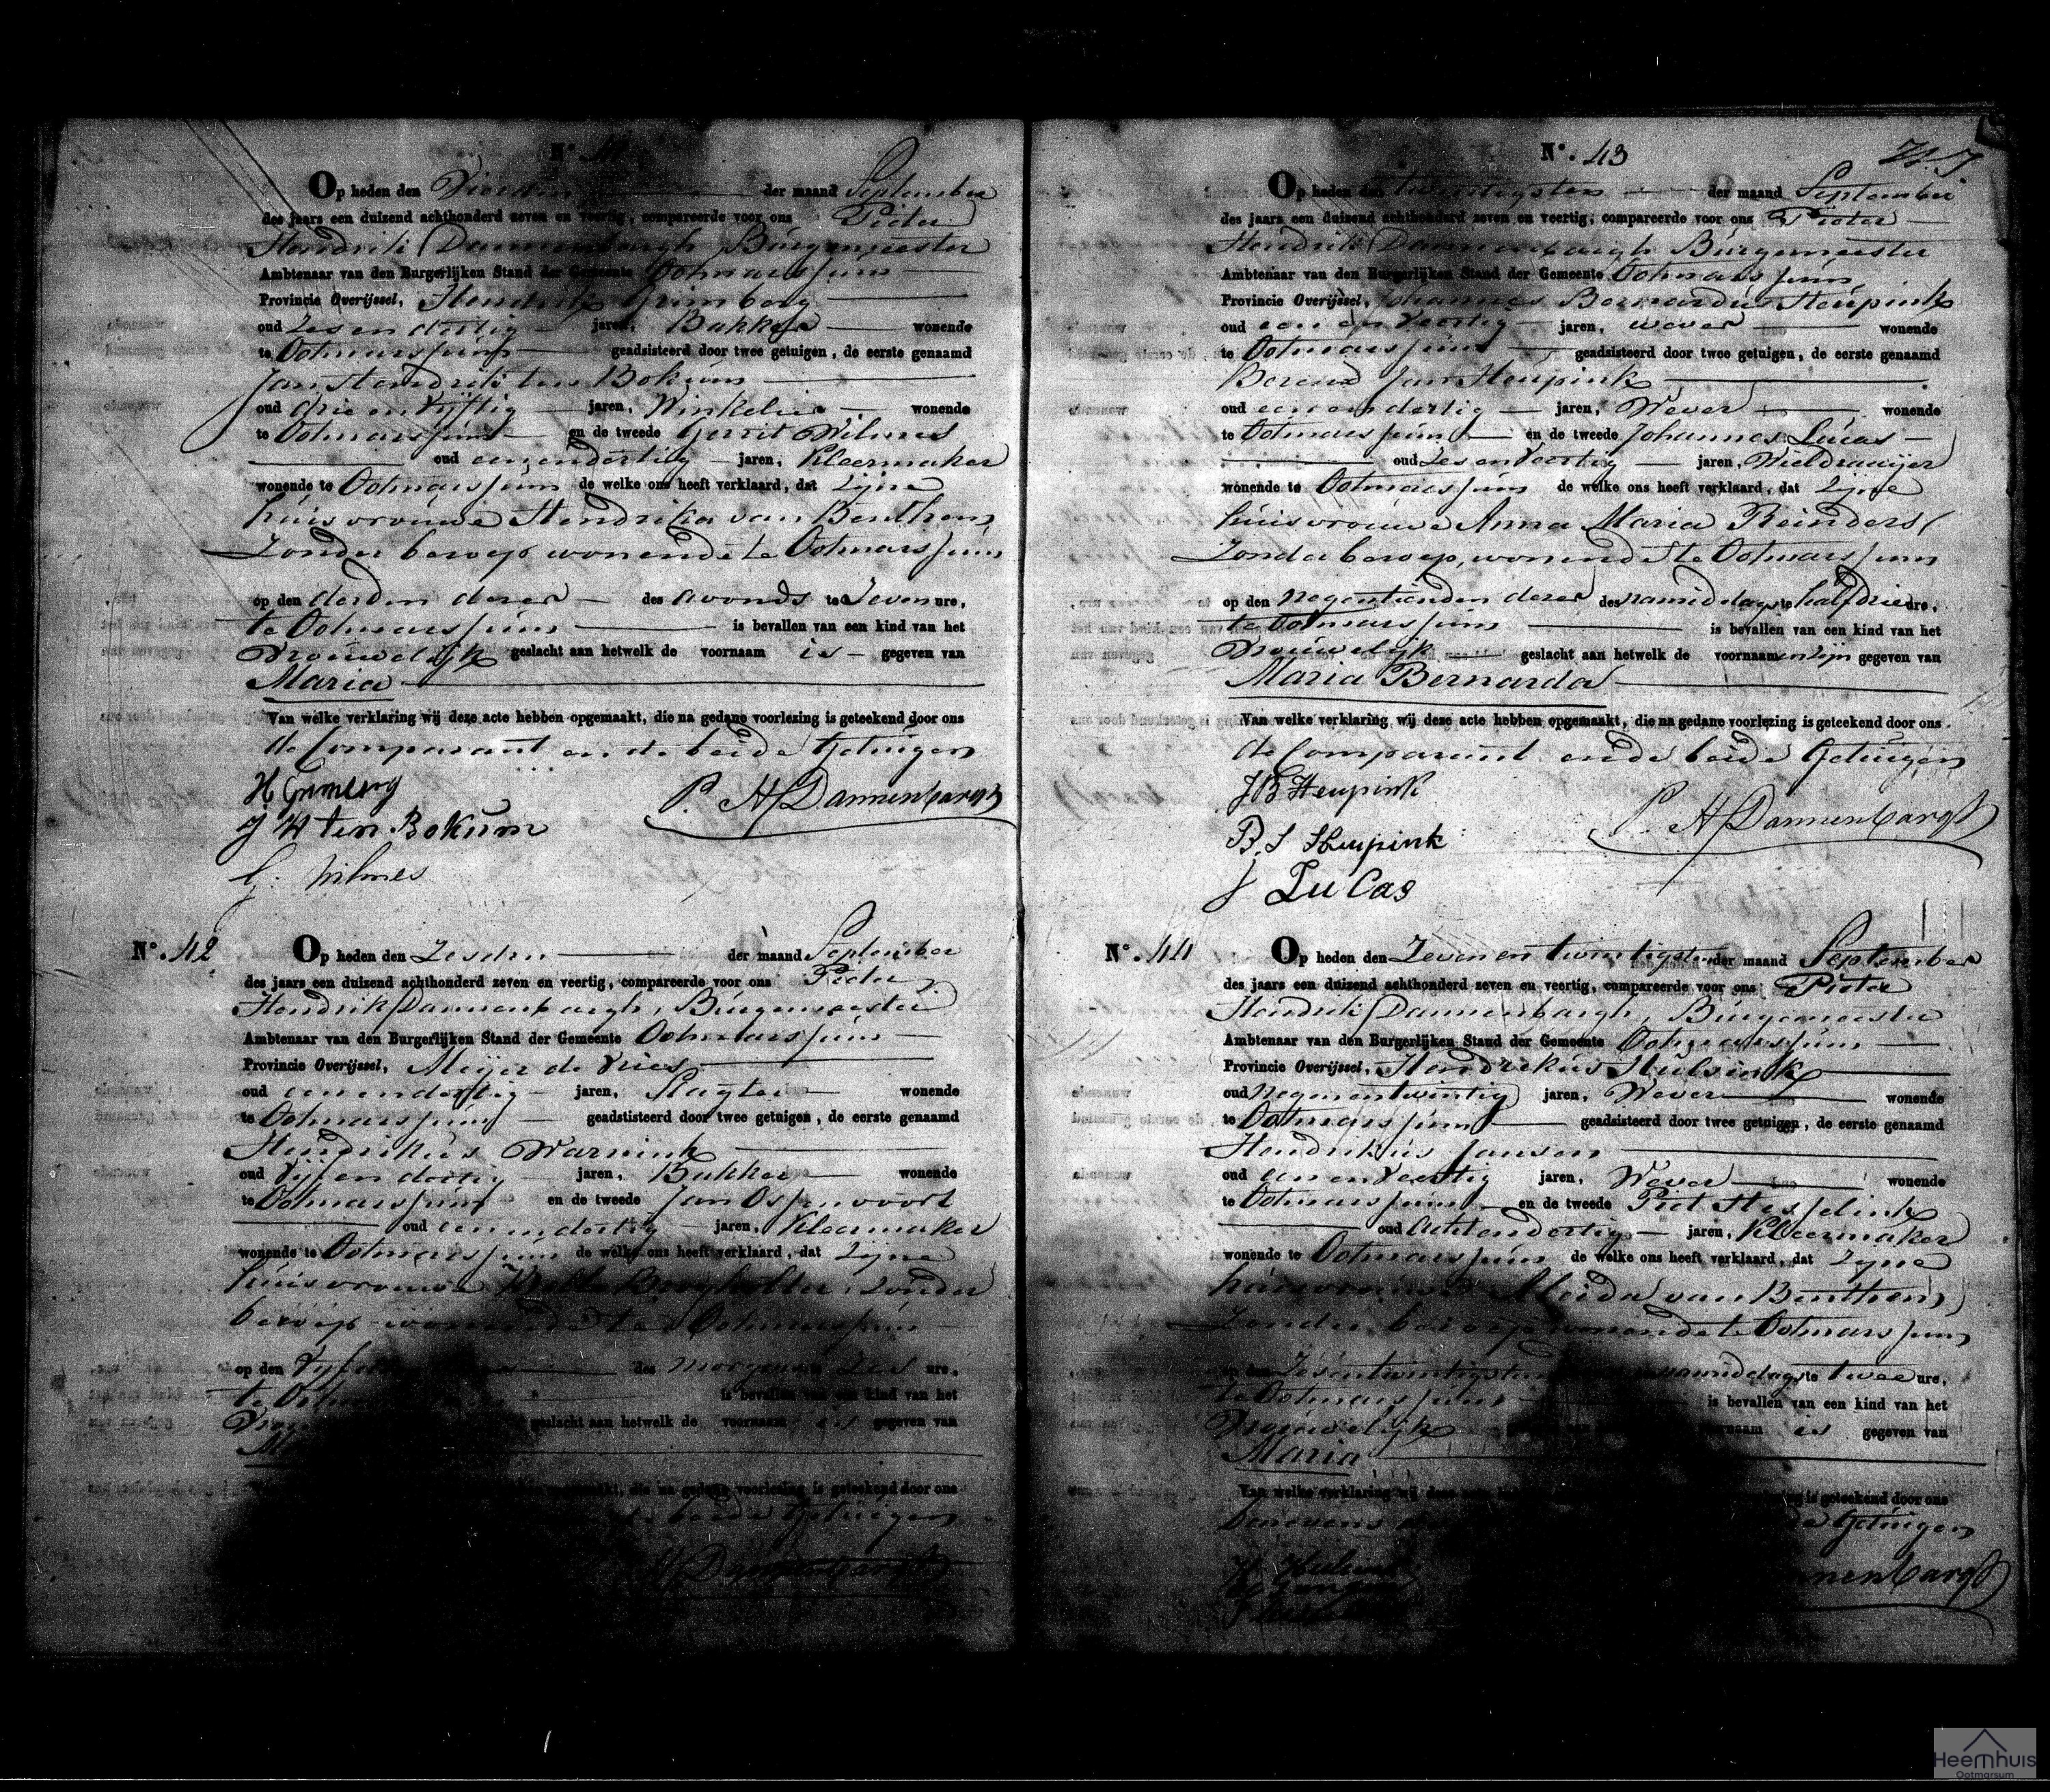 N°. 41
Op heden den Vierden der maand September
des jaars een duizend achthonderd zeven en veertig, compareerde voor ons Pieter
Hendrik Dannenbargh Burgemeester
Ambtenaar van den Burgerlijken Stand der Gemeente Ootmarssum
Provincie Overijssel, Hendrik Grimberg
oud Zes en dertig jaren, Bakker wonende
te Ootmarssum geadsisteerd door twee getuigen, de eerste genaamd
Jan Hendrik ten Bokum
oud drie en vijftig jaren, Winkelier wonende
te Ootmarssum en de tweede Gerrit Wilmes
oud een en dertig jaren, Kleermaker
wonende te Ootmarssum de welke ons heeft verklaard, dat zijne
huisvrouwe Hendrika van Benthem
Zonder beroep wonende te Ootmarssum
op den derden dezer des avonds te Zeven ure,
te Ootmarssum is bevallen van een kind van het
Vrouwelijk geslacht aan hetwelk de voornaam is gegeven van
Maria
Van welke verklaring wij deze acte hebben opgemaakt, die na gedane voorlezing is geteekend door ons
de Comparant en de beide Getuigen
H Grimberg
P. H Dannenbargh
J H ten Bokum
G. Wilmes
N°. 42
Op heden den Zesden der maand September
des jaars een duizend achthonderd zeven en veertig, compareerde voor ons Pieter
Hendrik Dannenbargh, Burgemeester
Ambtenaar van den Burgerlijken Stand der Gemeente Ootmarssum
Provincie Overijssel, Meijer de Vries
oud een en dertig jaren, Slagter wonende
te Ootmarssum geadstisteerd door twee getuigen, de eerste genaamd
Hendrikus Warnink
oud Vijf en dertig jaren, Bakker wonende
te Ootmarssum en de tweede Jan Ossenvoort
oud een en dertig jaren, Kleermaker
wonende te Ootmarssum de welke ons heeft verklaard, dat zijne
huisvrouwe zonder
beroep wonende te Ootmarssum
op den Vijfden des morgens Zes ure,
te is bevallen van een kind van het
geslacht aan hetwelk de voornaam is gegeven van
die na gedane voorlezing is geteekend door ons
beide Getuigen
H Dannenbargh
N°. 43
Op heden den twintigsten der maand September
des jaars een duizend achthonderd zeven en veertig, compareerde voor ons Pieter
Hendrik Dannenbargh Burgemeester
Ambtenaar van den Burgerlijken Stand der Gemeente Ootmarssum
Provincie Overijssel, Johannes Bernardus Heupink
oud een en veertig jaren, wever wonende
te Ootmarssum geadsisteerd door twee getuigen, de eerste genaamd
Berend Jan Heupink
oud een en dertig jaren, Wever wonende
te Ootmarssum en de tweede Johannes Lucas
oud Zes en Veertig jaren, Wieldraaijer
wonende te Ootmarssum de welke ons heeft verklaard, dat zijne
huisvrouwe Anna Maria Reinders
Zonder beroep, wonende te Ootmarssum
op den negentienden dezer des namiddags te half drie ure,
te Ootmarssum is bevallen van een kind van het
Vrouwelijk geslacht aan hetwelk de voornaamen zijn gegeven van
Maria Bernarda
Van welke verklaring wij deze acte hebben opgemaakt, die na gedane voorlezing is geteekend door ons
de Comparant en de beide Getuigen
J B Heupink
P. H Dannenbargh
B. J Heupink
J Lucas
N°. 44
Op heden den Zeven en twintigsten der maand September
des jaars een duizend achthonderd zeven en veertig, compareerde voor ons Pieter
Hendrik Dannenbargh, Burgemeester
Ambtenaar van den Burgerlijken Stand der Gemeente Ootmarssum
Provincie Overijssel, Hendrikus Hulsink
oud Negen en twintig jaren, Wever wonende
te Ootmarssum geadsisteerd door twee getuigen, de eerste genaamd
Hendrikus Jansen
oud een en Veertig jaren, Wever wonende
te Ootmarssum en de tweede Piet Hesselink
oud Acht en dertig jaren, Kleermaker
wonende te Ootmarssum de welke ons heeft verklaard, dat zijne
huisvrouwe Aleida van Benthem
Zonder beroep wonende te Ootmarssum
Zes en twintigsten namiddags te twee ure,
te Ootmarssum is bevallen van een kind van het
Vrouwelijk is gegeven van
Maria
Van welke verklaring wij deze is geteekend door ons
benevens Getuigen
Heemhuis
Ootmarsum